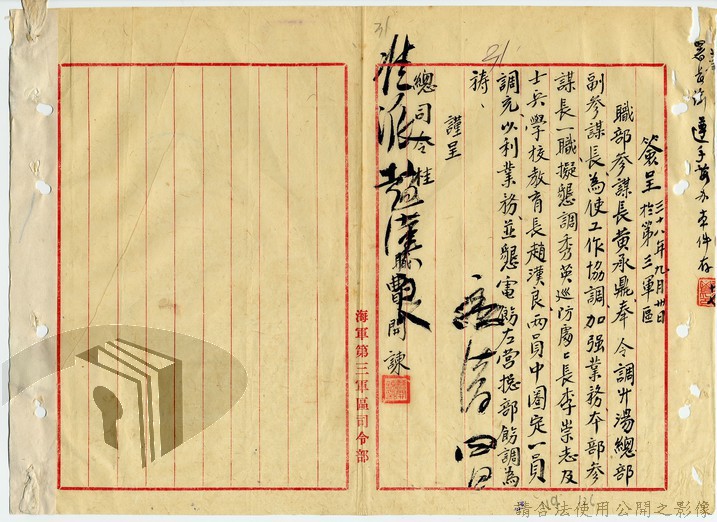 遵手諭办 本件存
簽呈 三十八年九月廿日 於第三軍區
職部參謀長黃承鼎奉 令調升湯總部
副參謀長為使工作協調加强業務本部參
謀長一職擬懇調秀英巡防處處長李崇志及
士兵學校教育長趙漢良兩員中圈定一員
調充以利業務並懇電飭左營總部飭調為
禱、
謹呈
總司令桂
職曹開諫
准派趙漢良
海軍第三軍區司令部
31
請合法使用公開之影像